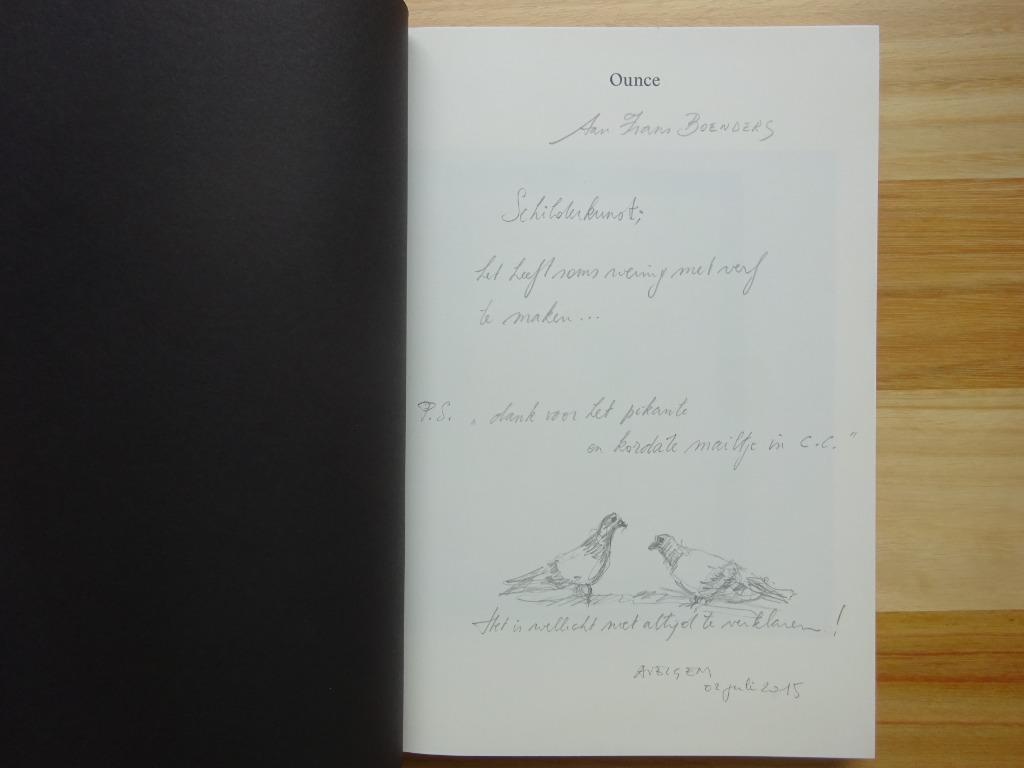 Ounce
Aan Frans BOENDERS
Schilderkunst;
het heeft soms weinig met verf
te maken...
P.S. „dank voor het pikante
en kordate mailtje in C.C.”
Het is wellicht niet altijd te verklaren!
AVELGEM
02 juli 2015